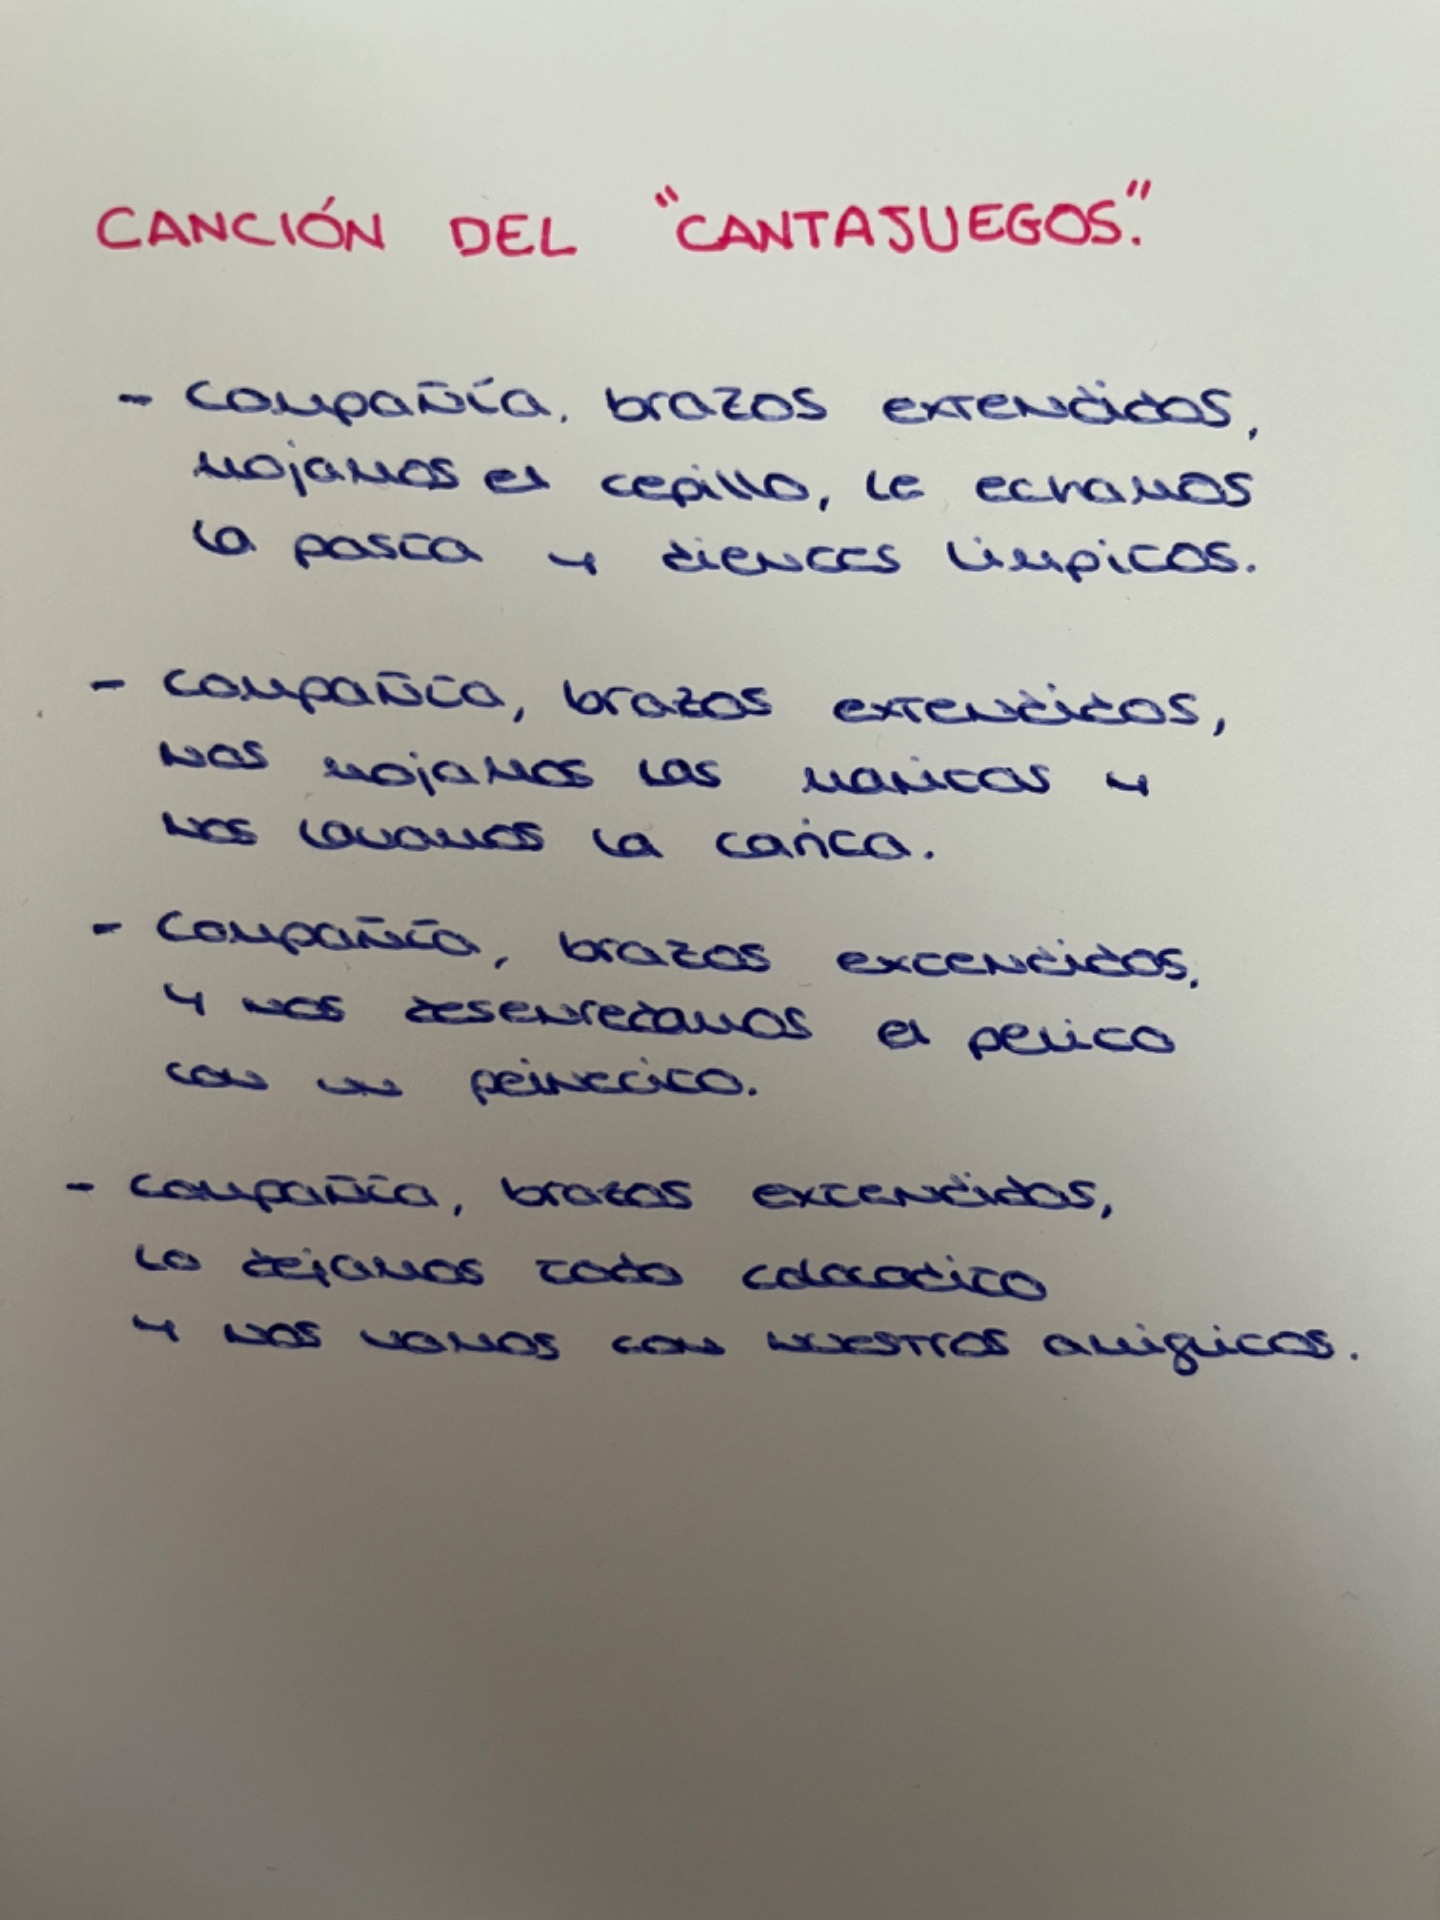 CANCIÓN DEL "CANTAJUEGOS."
- Compañía, brazos extendidos,
mojamos el cepillo, le echamos
la pasta y dientes limpitos.
- Compañía, brazos extendidos,
nos mojamos las manitas y
nos lavamos la carita.
- Compañía, brazos extendidos,
y nos desenredamos el pelito
con un peinecito.
- Compañía, brazos extendidos,
lo dejamos todo colocadito
y nos vamos con nuestros amiguitos.